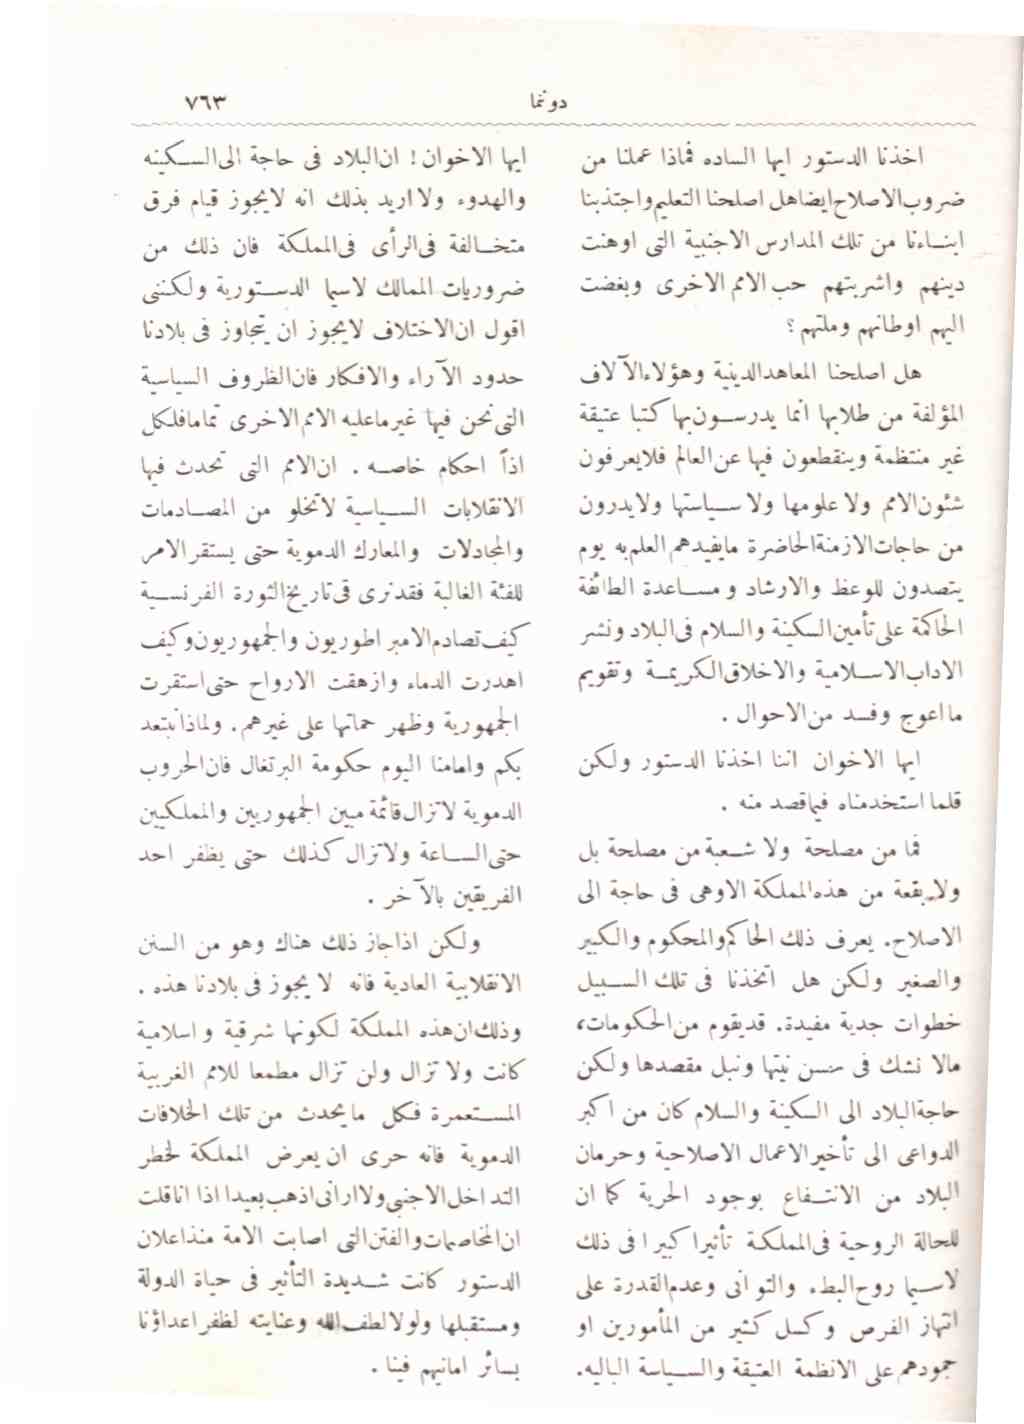 دونما
٧٦٣
اخذنا الدستور ايها الساده فماذا عملنا من
ضروب الاصلاح ايضا هل اصلحنا التعليم واجتذبنا
ابنـاءنا من تلك المدارس الاجنبية التى اوهنت
دينهم واشربتهم حب الامم الاخرى وبغضت
اليهم اوطانهم وملتهم ؟
هل اصلحنا المعاهد الدينية وهؤلاء الآلاف
المؤلفة من طلابها انما يدرسـون بها كتبا عتيقة
غير منتظمة وينقطعون فيها عن العالم فلا يعرفون
شئون الامم ولا علومها ولا سـياستها ولا يدرون
من حاجات الازمنة الحاضرة ما يفيدهم العلم به يوم
يتصدون للوعظ والارشاد ومسـاعدة الطائفة
الحاكمة على تأمين السكينة والسلام فى البلاد ونشر
الاداب الاسـلامية والاخلاق الكريمـة وتقويم
ما اعوج وفسد من الاحوال .
ايها الاخوان اننا اخذنا الدستور ولكن
قلما استخدمناه فيما قصد منه .
فما من مصلحة ولا شـعبة من مصلحة بل
ولا بقعة من هذه المملكة الا وهى فى حاجة الى
الاصلاح. يعرف ذلك الحاكم والمحكوم والكبير
والصغير ولكن هل اتخذنا فى تلك السـبيل
خطوات جدية مفيدة. قد يقوم من الحكومات،
مالا نشك فى حسن نيتها ونبل مقصدها ولكن
حاجة البلاد الى السكينة والسلام كان من اكبر
الدواعى الى تأخير الاعمال الاصلاحية وحرمان
البلاد من الانتـفاع بوجود الحرية كما ان
للحالة الروحية فى المملكة تأثيرا كبيرا فى ذلك
لا سـيما روح البطء والتوانى وعدم القدرة على
انتهاز الفرص وكسل كثير من المأمورين او
جمودهم على الانظمة العتيقة والسـياسة الباليه.
ايها الاخوان ! ان البلاد فى حاجة الى السـكينه
والهدوء ولا اريد بذلك انه لا يجوز قيام فرق
متخـالفة فى الرأى فى المملكة فان ذلك من
ضروريات الممالك لاسيما الدسـتورية ولكننى
اقول ان الاختلاف لا يجوز ان يتجاوز فى بلادنا
حدود الآراء والافكار فان الظروف السياسية
التى نحن فيها غير ما عليه الامم الاخرى تماما فلكل
اذاً احكام خاصـه . ان الامم التى تحدث فيها
الانقلابات السـياسية لا تخلو من المصـادمات
والمجادلات والمعارك الدموية حتى يستقر الامر
للفئة الغالبة فقد نرى فى تاريخ الثورة الفرنسـية
كيف تصادم الامبراطوريون والجمهوريون وكيف
اهدرت الدماء وازهقت الارواح حتى استقرت
الجمهورية وظهر حماتها على غيرهم. ولماذا نبتعد
بكم وامامنا اليوم حكومة البرتغال فان الحروب
الدموية لا تزال قائمة مبين الجمهوريين والملكيين
حتى السـاعة ولا تزال كذلك حتى يظفر احد
الفريقين بالآخر .
ولكن اذا جاز ذلك هناك وهو من السنن
الانقلابية العادية فانه لا يجوز فى بلادنا هذه .
وذلك ان هذه المملكة لكونها شرقية واسلامية
كانت ولا تزال ولن تزال مطمعا للامم الغربية
المسـتعمرة فكل ما يحدث من تلك الخلافات
الدموية فانه حرى ان يعرض المملكة لخطر
التداخل الاجنبى ولا ارانى اذهب بعيدا اذا انا قلت
ان المخاصمات والفتن التى اصابت الامة منذ اعلان
الدستور كانت شـديدة التأثير فى حياة الدولة
ومستقبلها ولولا لطف الله وعنايته لظفر اعداؤنا
بسائر امانيهم فينا .